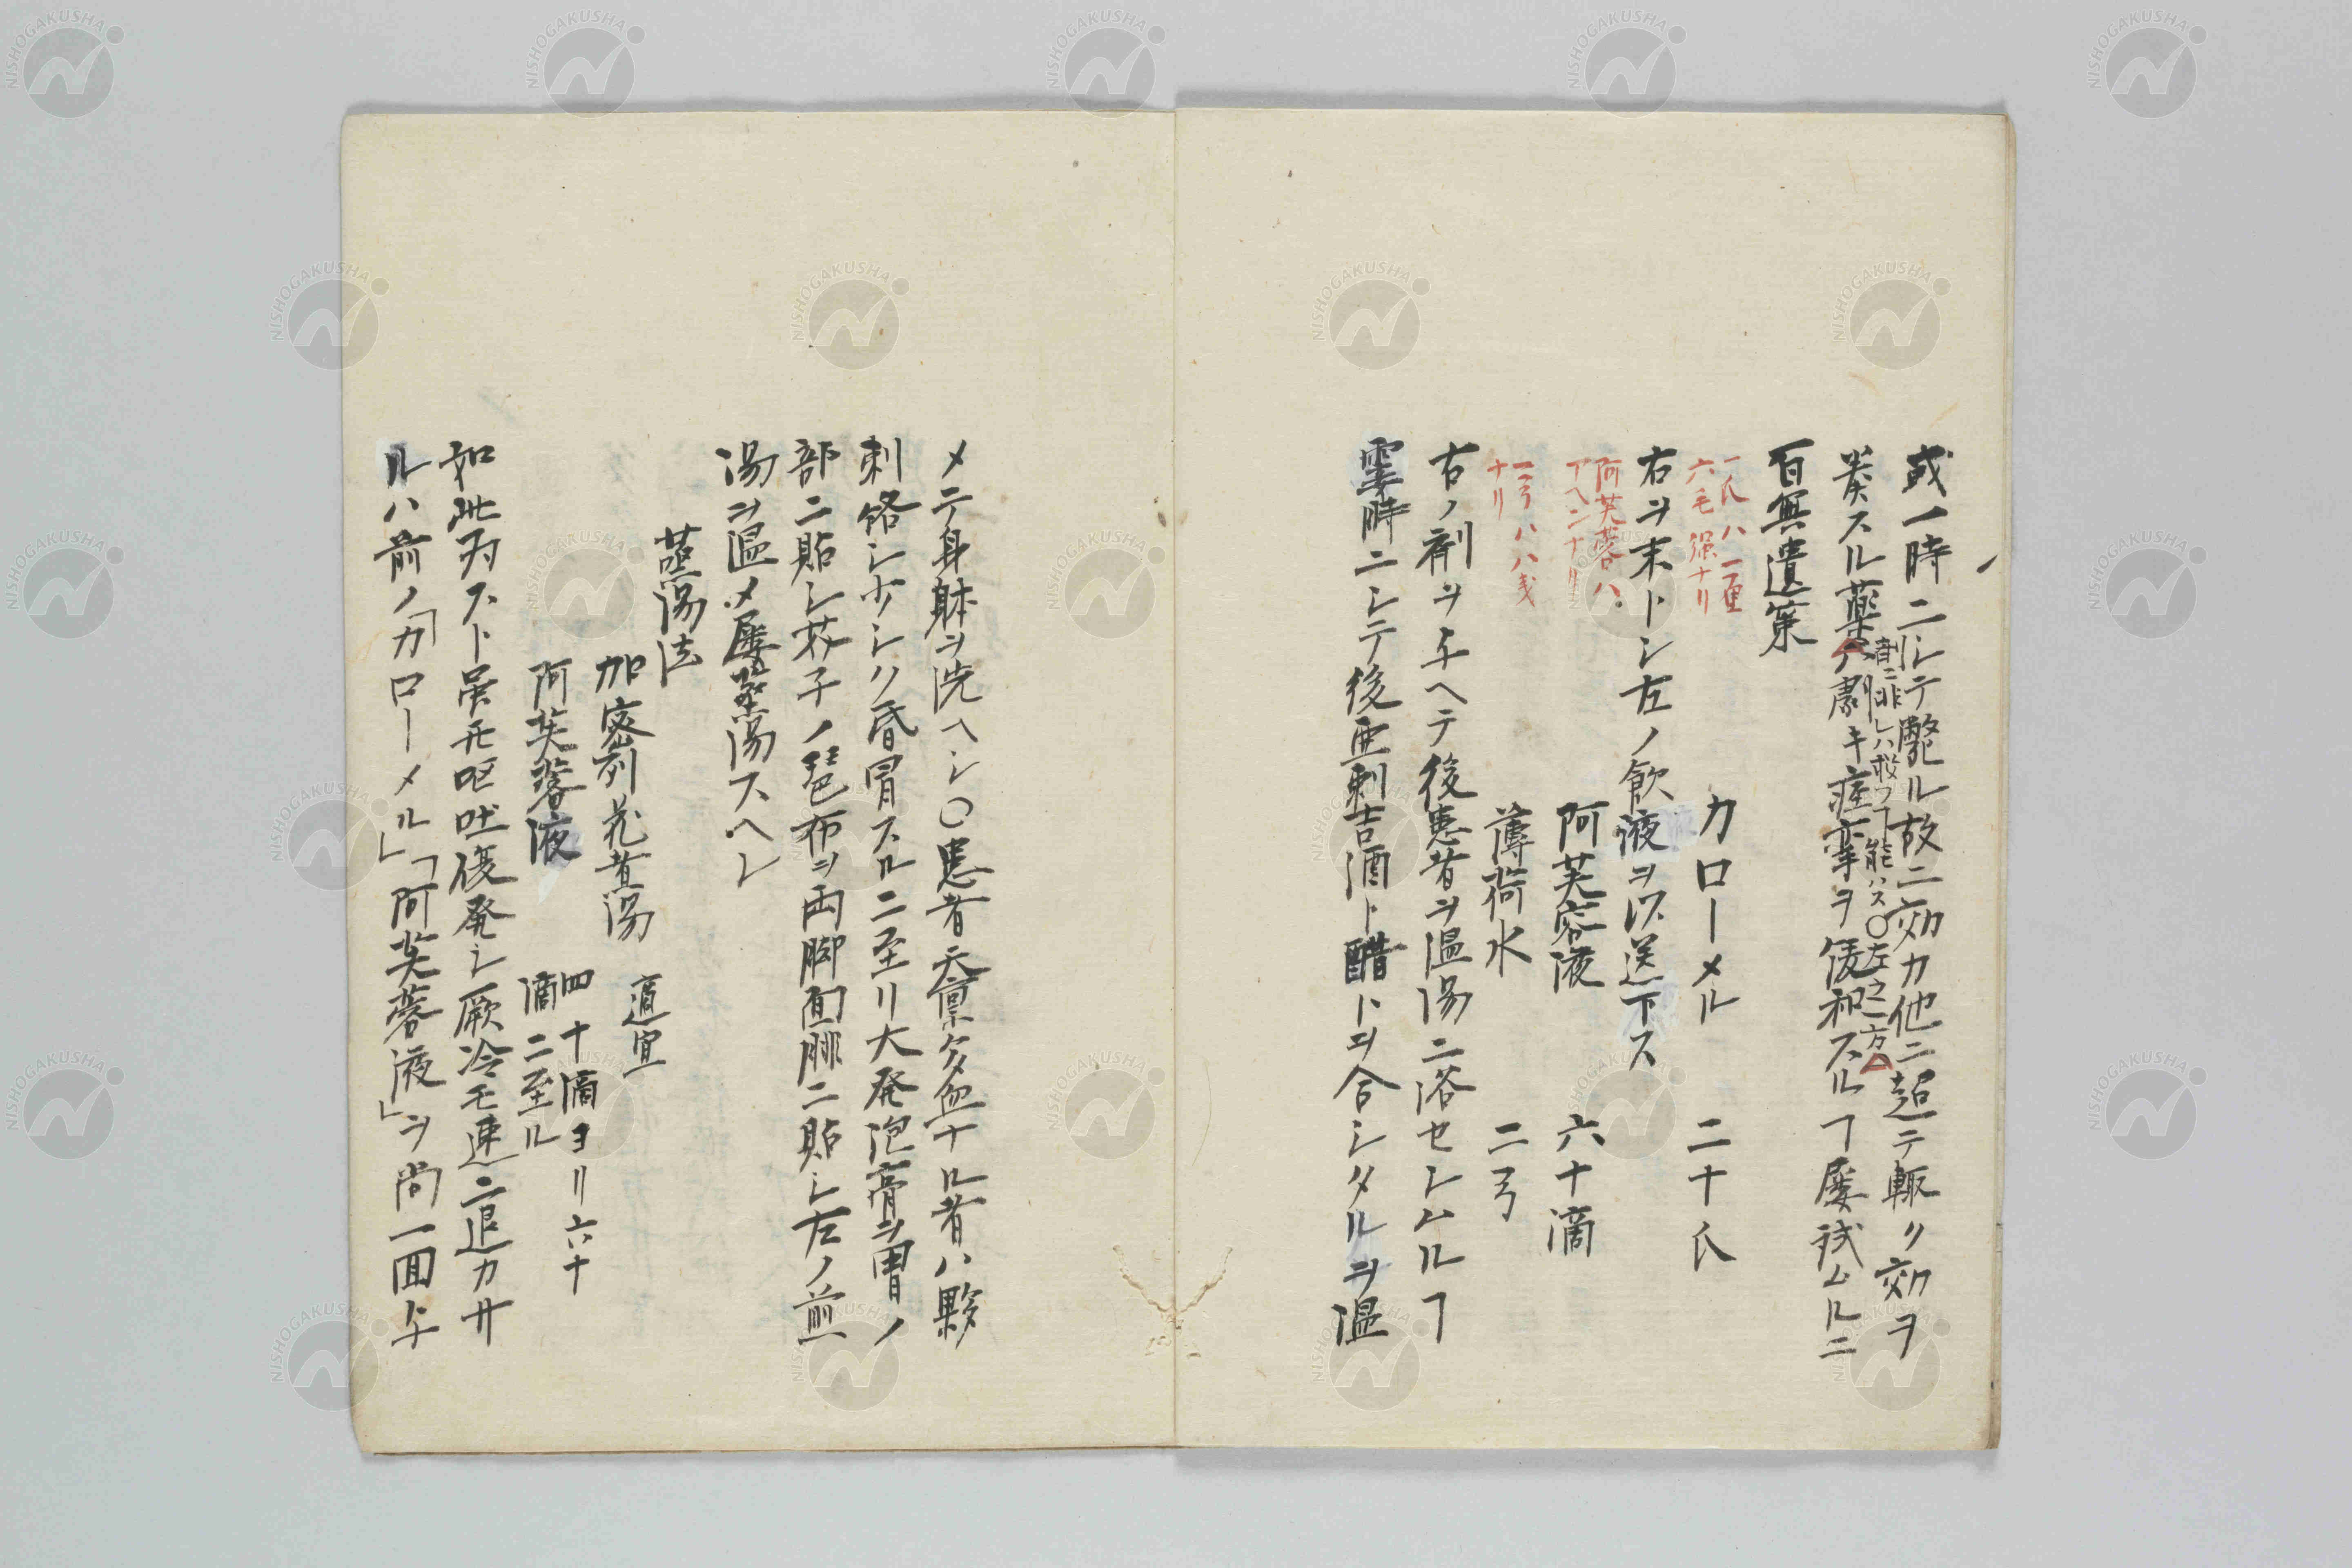 或一時ニシテ斃ル故ニ効力他ニ超テ輙ク効ヲ
剤ニ非レハ救フヿ能ハス〇左之一方△
奏スル薬△ノ劇キ痙攣ヲ緩和スルヿ屡試ムルニ
百無遺策
カローメル 二十瓜
一瓜ハ一厘
六毛強ナリ
右ヲ末トシ左ノ飲液ヲ以送下ス
阿芙蓉ハ
アヘンナリ
阿芙蓉液 六十滴
薄荷水 二弓
一弓ハ八戔
ナリ
右ノ剤ヲ与ヘテ後患者ヲ温湯ニ浴セシムルヿ
霎時ニシテ後亜剌吉酒ト醋トヲ合シタルヲ温
メテ身躰ヲ洗ヘシ〇患者天禀多血ナル者ハ夥
刺絡シ少シク昏冒スルニ至リ大発泡膏ヲ胃ノ
部ニ貼シ芥子ノ琶布ヲ両脚面腓ニ貼シ左ノ煎
湯ヲ温メ屡蒸湯スヘシ
蒸湯法
加密列花煮湯 適宜
阿芙蓉液 四十滴ヨリ六十
滴ニ至ル
如此為スト虽𪜈嘔吐復発シ厥冷モ速ニ退カサ
ルハ前ノ「カローメル」「阿芙蓉液」ヲ尚一回与